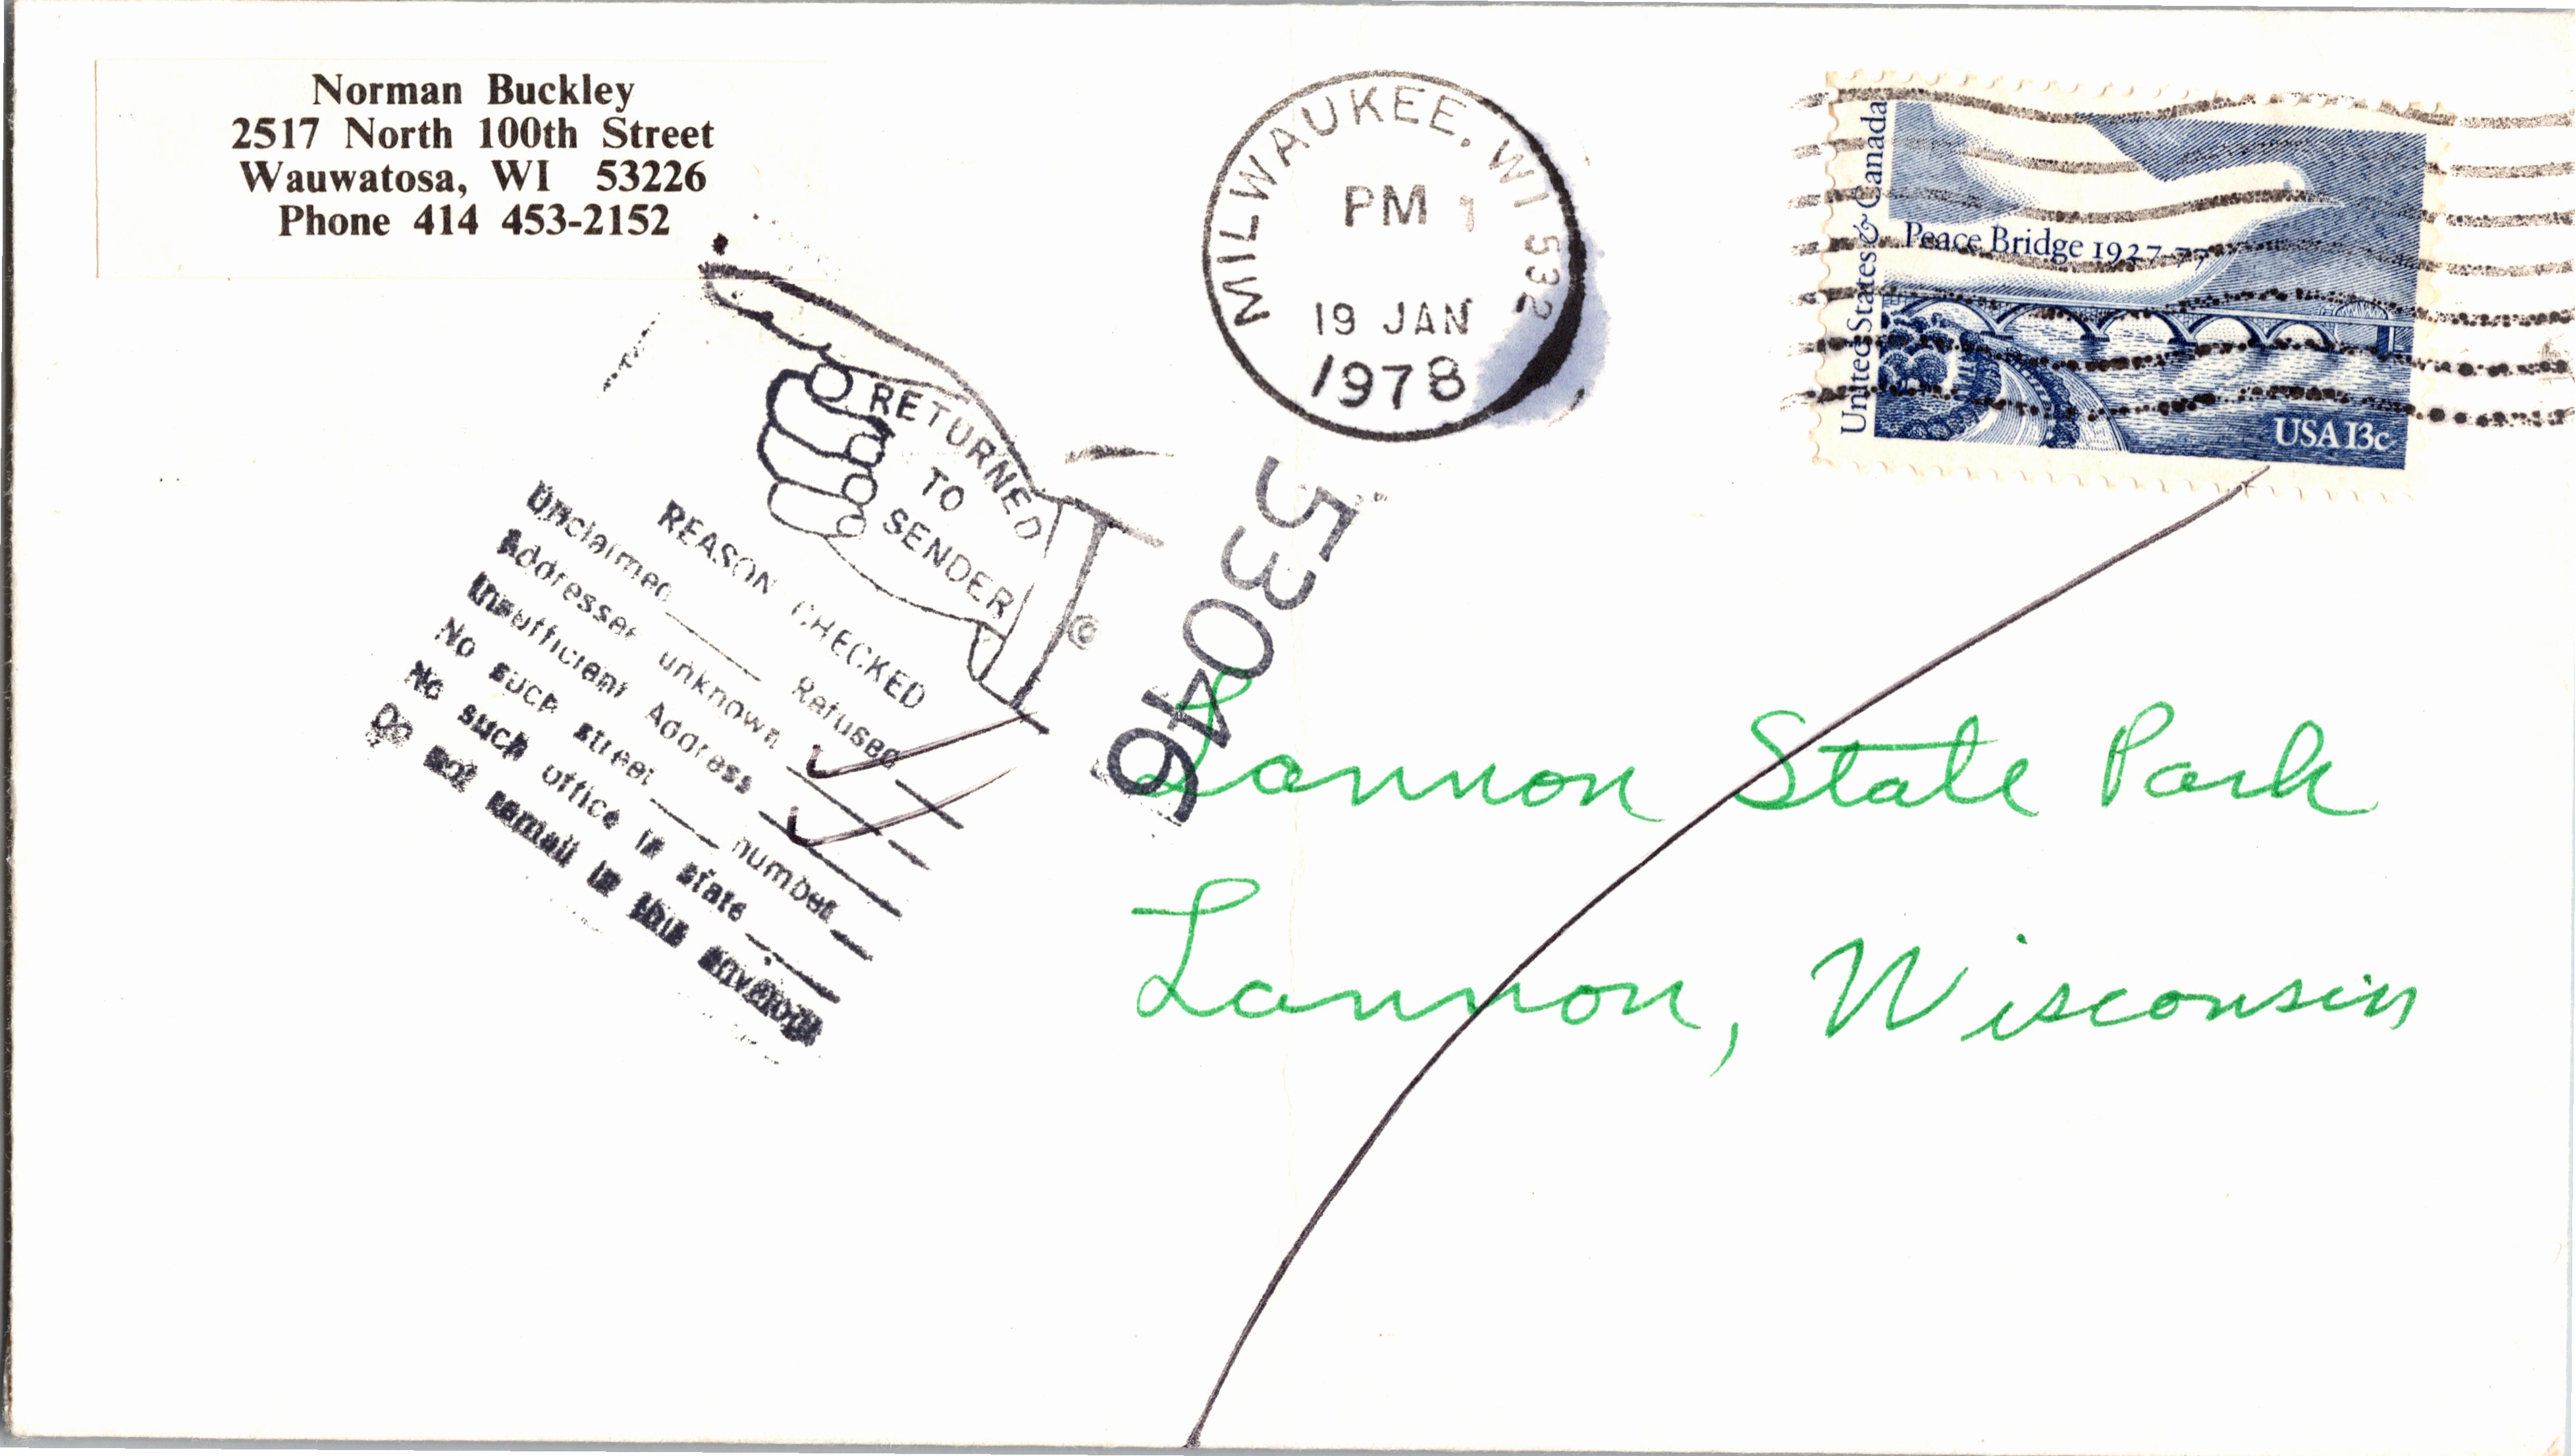 Norman Buckley
2517 North 100th Street
Wauwatosa, WI 53226
Phone 414 453-2152
MILWAUKEE, WI 532
PM 1
19 JAN
1978
United States & Canada
Peace Bridge 1927-77
USA 13c
RETURNED
TO
SENDER
REASON CHECKED
Unclaimed Refused
Addressee unknown
Insufficient Address
No such street number
No such office in state
Do not remail in this envelope
53046
Lannon State Park
Lannon, Wisconsin